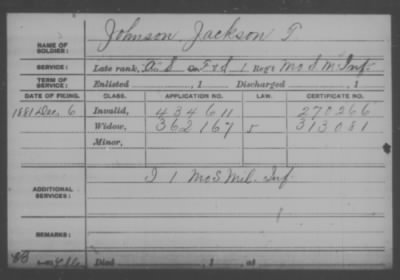 NAME OF SOLDIER: Johnson, Jackson T.
SERVICE: Late rank, A. S. F & S 1 Reg't Mo S M Inf.
TERM OF SERVICE: Enlisted , 1 Discharged , 1
DATE OF FILING. CLASS. APPLICATION NO. LAW. CERTIFICATE NO.
1881 Dec. 6 Invalid, 434611 270266
Widow, 362167 313081
Minor,
ADDITIONAL SERVICES: I 1 Mo S Mil. Inf.
REMARKS:
Died , 1 , at